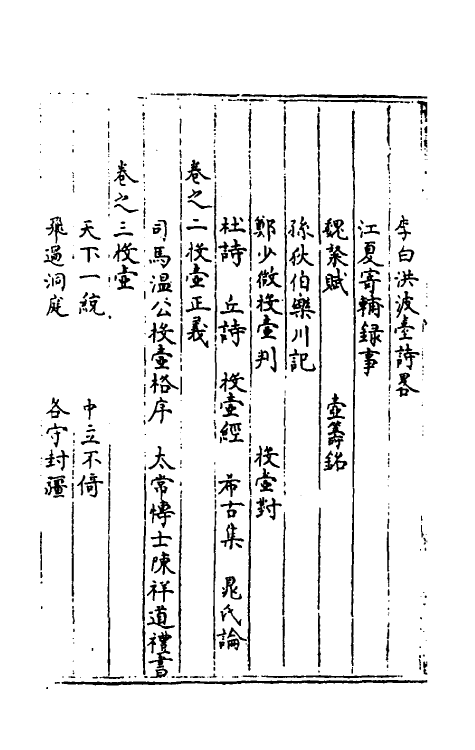 李白洪波臺詩畧
江夏寄輔録事
魏粲賦 壺籌銘
孫狄伯樂川記
鄭少微投壺判 投壺對
杜詩 丘詩 投壺經 希古集 晁氏論
卷之二投壺正義
司馬温公投壺格序 太常博士陳祥道禮書
卷之三投壺
天下一統 中立不倚
飛過洞庭 各守封疆